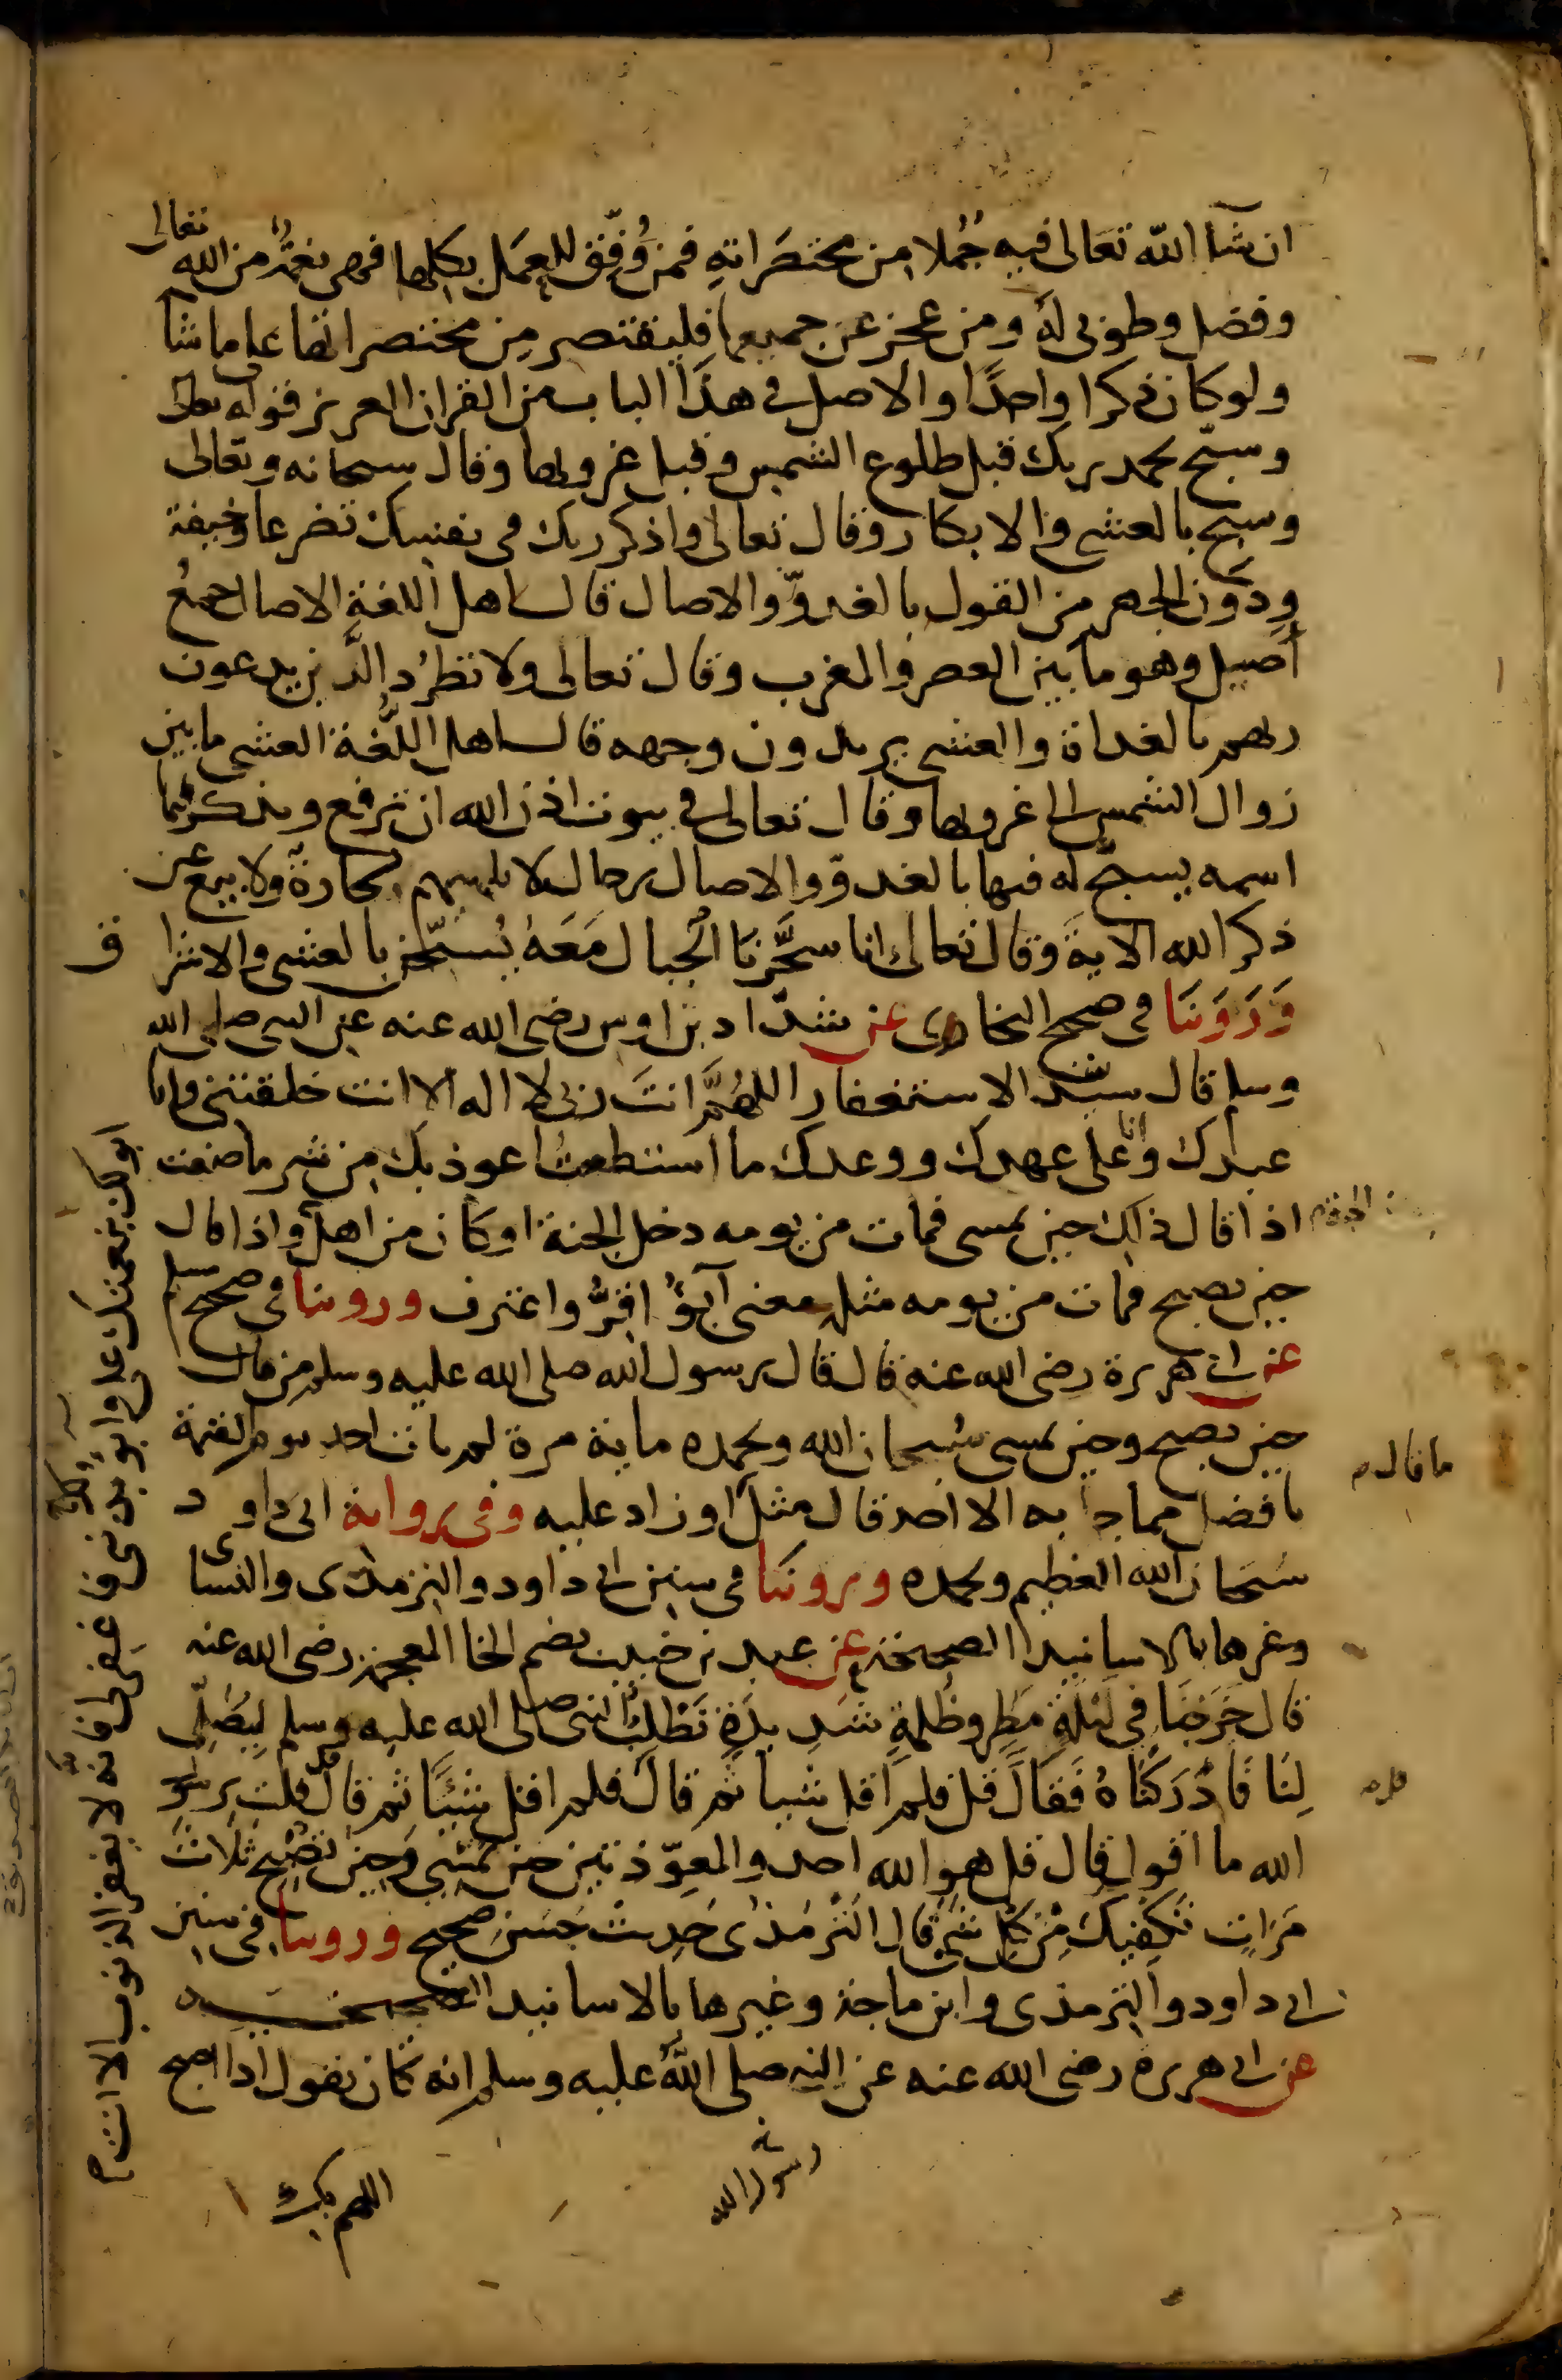 ان شآ الله تعالى فيه جُملا من مختصَراتهِ فمن وُفّق للعمَل بكلها فهى نعمةٌ من الله تعالى
وفضل وطوبى لهُ ومن عجز عن جميعها فليقتصر مِن مختصراتها على ما شآ
ولو كان ذكرا واحدًا والاصل فى هذا الباب من القران العزيز قوله تعالى
وسبّح بحمد ربك قبل طلوع الشمس وقبل غروبها وقال سبحانه وتعالى
وسبح بالعشي والابكار وقال تعالى واذكر ربك فى نفسك تضرعا وخيفة
ودُون الجهر من القول بالغدوّ والاصال قال اهل اللغةِ الاصال جمعُ
أصيل وهو ما بين العصر والمغرب وقال تعالى ولا تطرُد الَّذين يدعون
ربهم بالغداة والعشى يريدون وجهه قال اهل اللُّغة العشى ما بين
زوال الشمس الى غروبها وقال تعالى فى بيوت اذن الله ان ترفع ويذكر فيها
اسمه يسبّح له فيها بالغدوّ والاصال رجال لا تلهيهم تجارةٌ ولا بيع عن
ذكر الله الاية وقال تعالى انا سخَّرنَا الجبال مَعَهُ يُسبّحن بالعشى والاشرا ق
وَرَوَينَا فى صحيح البخارى عن شدّاد بن اوس رضى الله عنه عن النبى صلى الله
وسلم قال سيد الاستغفار اللهُمَّ انتَ ربى لا اله الا انت خلقتنى وانا
عبدك وانا على عهدك ووعدك ما استطعتُ اعوذ بك من شر ما صنعت
اذا قال ذلك حين يمسى فمات من يومه دخل الجنة او كان من اهل واذا قال
حين يصبح فمات من يومه مثله معنى أبوُ اقرُّ واعترف وروينا فى صحيح مسلم
عن ابى هريرة رضى الله عنه قال قال رسول الله صلى الله عليه وسلم من قال
حين يصبح وحين يمسى سُبحان الله وبحمده ماية مرة لم يات احد يوم القيمة
ما قال
بافضل مما جا به الا احد قال مثل او زاد عليه وفى رواية ابى داو د
سبحان الله العظيم وبحمده وروينا فى سنن ابى داود والترمذى والنساى
وغيرها بالاسانيد الصحيحة عن عبد بن خبيب بضم الخا المعجمة رضى الله عنه
قال خرَجنَا فى ليلةِ مَطرٍ وظُلمةٍ شدِيدَةٍ نَطلبُ النبى صلى الله عليه وسلم ليصَلّى
لنَا فَأدْرَكنَاهُ فَقالَ قل فلم اقل شيا ثم قالَ فلم اقل شيئًا ثم قال قل قلت يرسو
الله ما اقول قال قل هو الله احد والمعوّذتين حين تمسي وحين تصبح ثلاثَ
مَرّاتٍ تكفيكَ مِنْ كلِّ شى قال الترمذى حَدِيث حَسَن صحيح وروينا فى سنن
ابى داود والترمذى وابن ماجة وغيرها بالاسانيد الصحيحة
عن ابى هريرة رضى الله عنه عن النبى صلى اللهُ عليه وسلم انه كان يقول اذا اصبح
رسول الله
اللهم بك
ابو لك بنعمتك على وابو بذنبى فاغفر لى فانه لا يغفر الذنوب الا انت